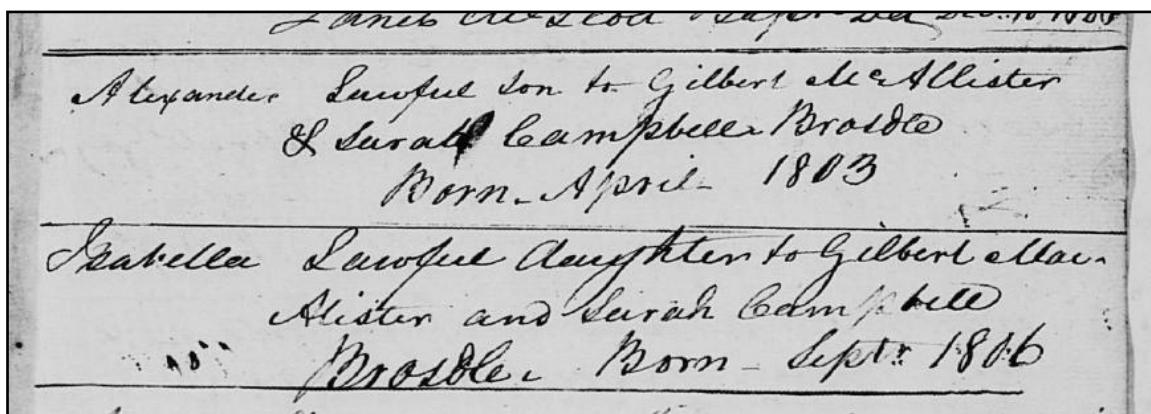 Alexander Lawful son to Gilbert McAllister
& Sarah Campbell Brosdle
Born April 1803
Isabella Lawful daughter to Gilbert Mac-
Alister and Sarah Campbell
Brosdle. Born Septr. 1806